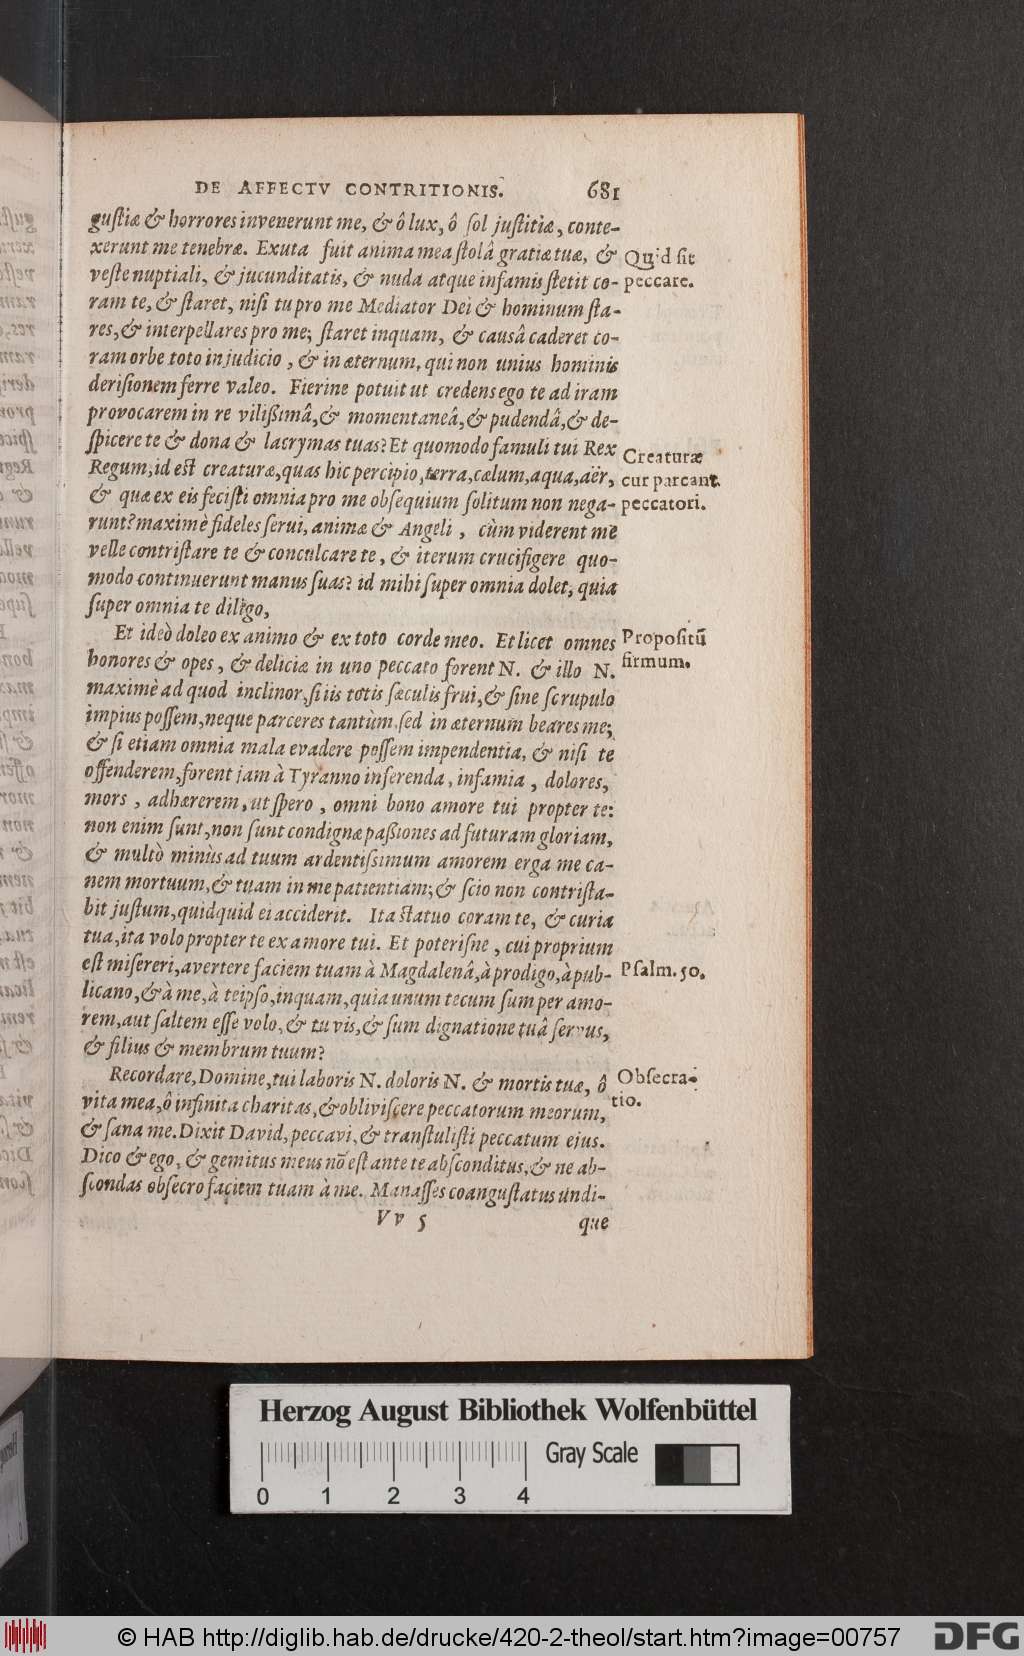 DE AFFECTV CONTRITIONIS. 681
gustiæ & horrores invenerunt me, & ô lux, ô sol justitiæ, conte-
xerunt me tenebræ. Exuta fuit anima mea stolâ gratiæ tuæ, &
veste nuptiali, & jucunditatis, & nuda atque infamis stetit co-
ram te, & staret, nisi tu pro me Mediator Dei & hominum sta-
res, & interpellares pro me; staret inquam, & causâ caderet co-
ram orbe toto in judicio, & in æternum, qui non unius hominis
derisionem ferre valeo. Fierine potuit ut credens ego te ad iram
provocarem in re vilissimâ, & momentaneâ, & pudendâ, & de-
spicere te & dona & lacrymas tuas? Et quomodo famuli tui Rex
Regum, id est creaturæ, quas hic percipio, terra, cælum, aqua, aër,
& quæ ex eis fecisti omnia pro me obsequium solitum non nega-
runt? maximè fideles serui, animæ & Angeli, cùm viderent me
velle contristare te & conculcare te, & iterum crucifigere quo-
modo continuerunt manus suas? id mihi super omnia dolet, quia
super omnia te diligo,
Quid sit
peccare.
Creaturæ
cur parcant
peccatori.
Et ideò doleo ex animo & ex toto corde meo. Et licet omnes
honores & opes, & deliciæ in uno peccato forent N. & illo N.
maximè ad quod inclinor, si iis totis sæculis frui, & sine scrupulo
impius possem, neque parceres tantùm, sed in æternum beares me;
& si etiam omnia mala evadere possem impendentia, & nisi te
offenderem, forent jam à Tyranno inferenda, infamia, dolores,
mors, adhærerem, ut spero, omni bono amore tui propter te:
non enim sunt, non sunt condignæ passiones ad futuram gloriam,
& multò minùs ad tuum ardentissimum amorem erga me ca-
nem mortuum, & tuam in me patientiam; & scio non contrista-
bit justum, quidquid ei acciderit. Ita statuo coram te, & curia
tua, ita volo propter te ex amore tui. Et poterisne, cui proprium
est misereri, avertere faciem tuam à Magdalenâ, à prodigo, à pub-
licano, & à me, à teipso, inquam, quia unum tecum sum per amo-
rem, aut saltem esse volo, & tu vis, & sum dignatione tuâ servus,
& filius & membrum tuum?
Propositũ
firmum.
Psalm. 50.
Recordare, Domine, tui laboris N. doloris N. & mortis tuæ, ô
vita mea, ô infinita charitas, & obliviscere peccatorum meorum,
& sana me. Dixit David, peccavi, & transtulisti peccatum ejus.
Dico & ego, & gemitus meus nõ est ante te absconditus, & ne ab-
scondas obsecro faciem tuam à me. Manasses coangustatus undi-
Obsecra-
tio.
Vv 5 que
Herzog August Bibliothek Wolfenbüttel
Gray Scale
0 1 2 3 4
© HAB http://diglib.hab.de/drucke/420-2-theol/start.htm?image=00757
DFG